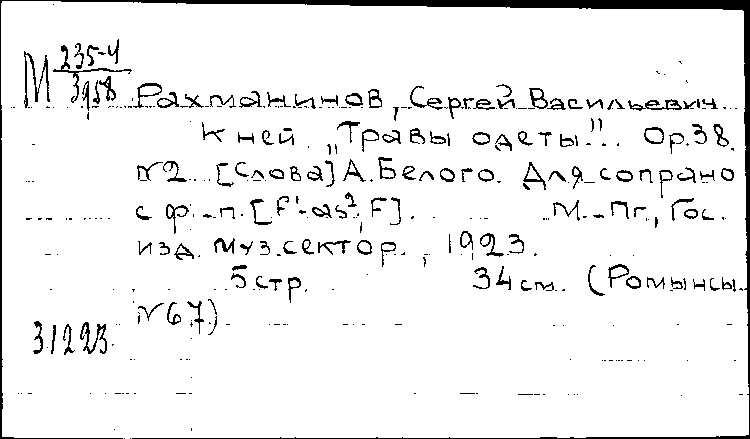 М 235-4
3958
Рахманинов, Сергей Васильевич.
К ней. „Травы одеты"... Op.38.
N2 [Слова] А.Белого. Для сопрано
с ф.-п. [f'-as², F]. М.-Пг., Гос.
изд. муз.сектор., 1923.
5 стр. 34 см. (Ромынсы
N67)
31223